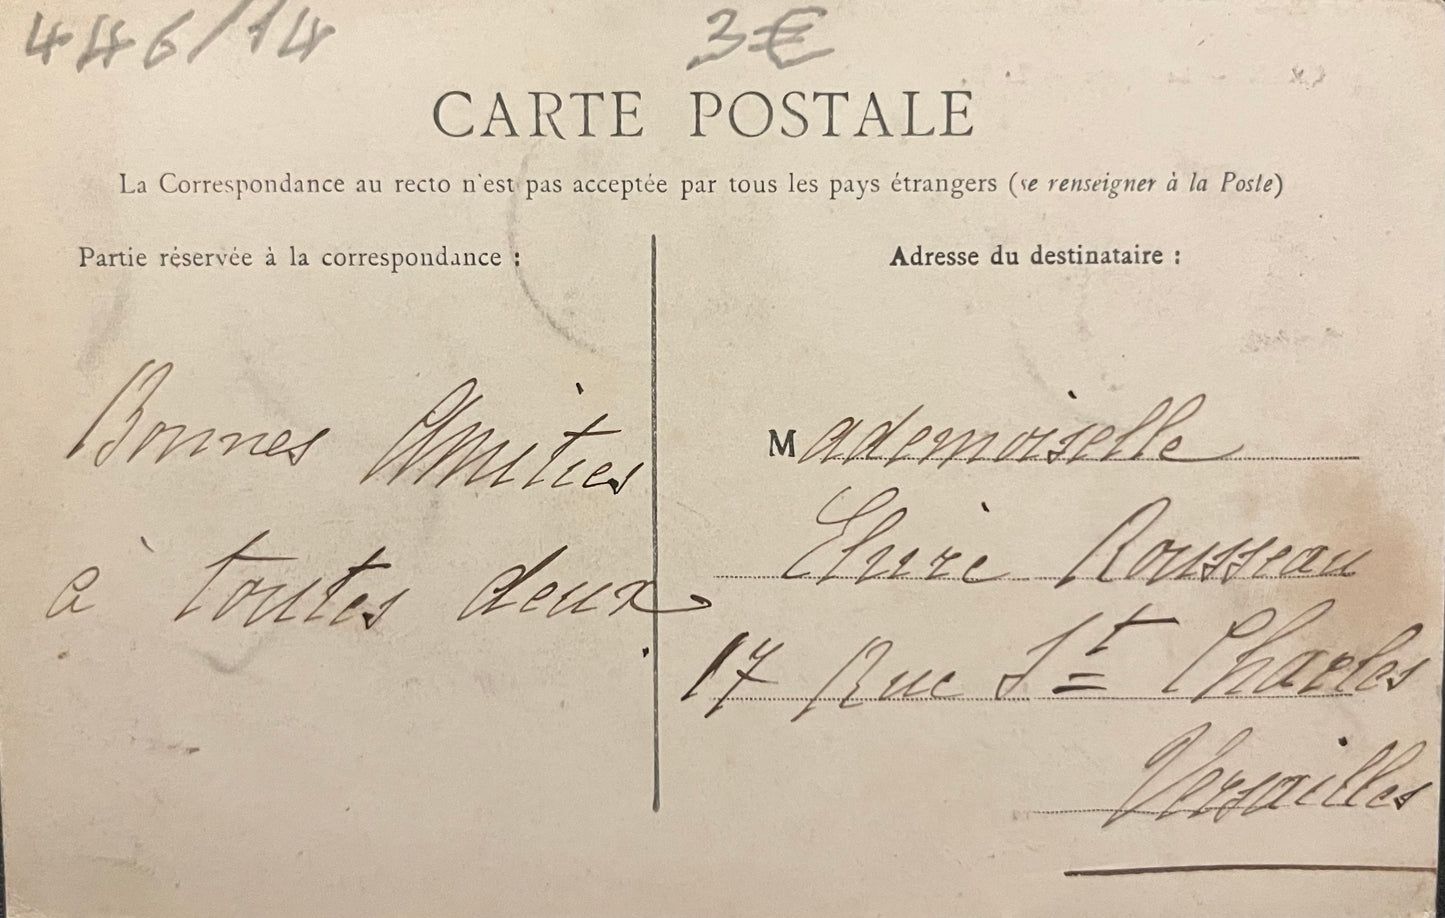 446/14 3€
CARTE POSTALE
La Correspondance au recto n'est pas acceptée par tous les pays étrangers (se renseigner à la Poste)
Partie réservée à la correspondance :
Adresse du destinataire :
Bonnes Amities
à toutes deux
Mademoiselle
Rousseau
17 Rue St Charles
Versailles